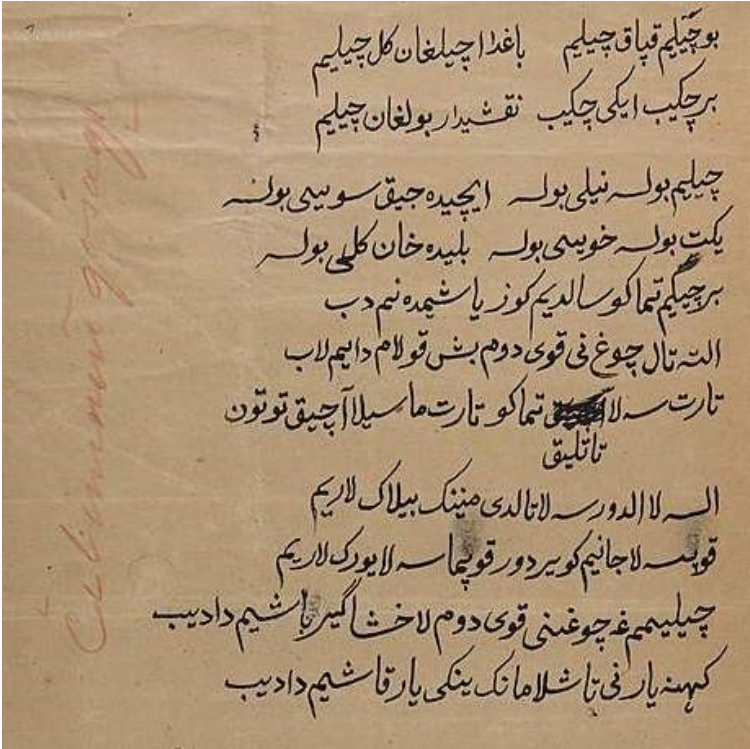 بو چیلیم قپاق چیلیم باغدا اچیلغان کل چیلیم
بر چکیب ایکی چکیب نقشیدار بولغان چیلیم
چیلیم بولسه نیلی بولسه ایچیده جیق سویسی بولسه
یکت بولسه خویسی بولسه بلیده خان کلی بولسه
بر چیگیم تماکو سالدیم کوز یاشیمده نیم دب
التـه تال چوغ نی قوی دوم بش قولام دانیم لاب
تارت سه لا تماکو تارت ماسیلا آچیق توتون
تاتلیق
السه لا الدور سه لا تالدی مینینک بیلاک لاریم
قویسه لا جانیم کویر دور قویماسه لا یورک لاریم
چیلیمم غه چوغنی قوی دوم لاخشاگیر باشیم دادیب
کهنه یار نی تاشلامانک ینکی یار قاشیم دادیب
Čilimniŋ qošaγï